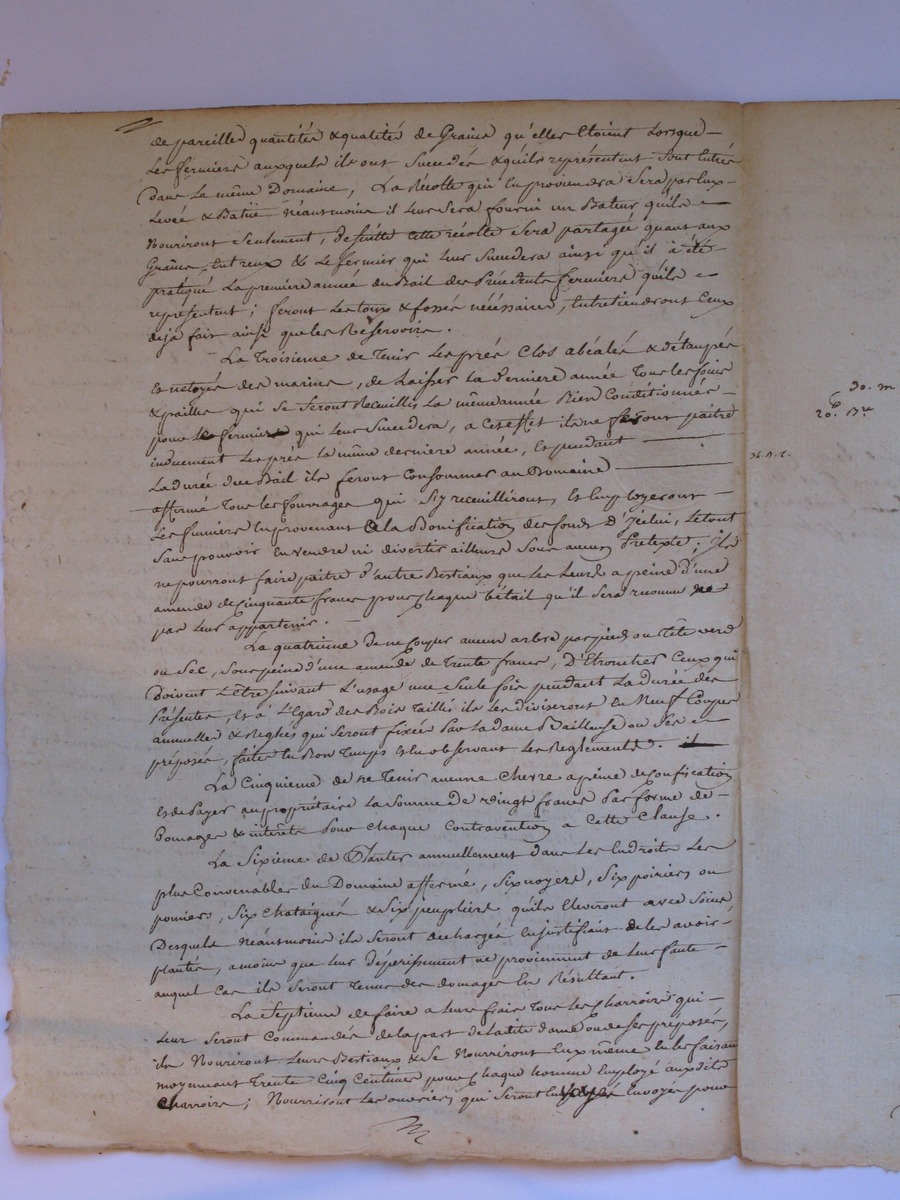 de pareille quantités & qualités de Grains qu'elles Etoient Lorsque
Les fermiers auxquels ils ont Succedés & quils representent Sont Entrés
Dans Le même Domaine, La Récolte qui En proviendra Sera par Eux
Levée & Batüe Néantmoins il Leur Sera fourni un Bateur quils
Nouriront Seulement, de suitte cette récolte Sera partagée quant aux
Grains Entreux & Le fermier qui Leur Succedera ainsi qu'il à été
pratiqué La premiere année du Bail des Précedents fermiers quils
representent; feront Les toux & fossés nécéssaires, Entretiendront Ceux
deja fait ainsi que les Réservoirs.
La Troisieme de Tenir Les prés Clos abéalés & d'étaupés
Et netoyés des marins, de Laisser La derniere année Tous les foins
& pailles qui Se Seront Recueillis La même année Bien Conditionnés
pour Le fermier qui Leur Succedera, a Cet effet ils ne feront paitre
induement Les prés la même derniere année, Et pendant
La durée du Bail ils feront Consommer au Domaine
affermé Tous les fourrages qui S'y recueilliront, Et Employeront
Les fumiers En provenant a la Bonification des fonds d'Jcelui, Le tout
Sans pouvoir En vendre ni divertir ailleurs Sous aucun Pretexte; Ils
ne pourront faire paitre d'autre Bestiaux que Les Leurs a peine d'une
amende de Cinquante francs pour chaque bétail qu'il Sera reconnu ne
pas Leur appartenir.
La quatrieme de ne Couper aucun arbre par pied ou Tête verd
ou Sec, Sous peine d'une amende de Trente francs, D'Etroncher Ceux qui
Doivent L'Etre Suivant L'usage une Seule fois pendant La durée des
Présentes, Et à L'Egard des Bois Taillis ils Les diviseront En Neuf Coupes
annuelles & Reglées qui Seront fixées Par La dame Bailleuse ou Ses
préposés, faites En Bon Temps Et En observant Les Reglements.
La Cinquieme de ne Tenir aucune Chevre a peine de Confiscation
Et de Payer au propriétaire La Somme De vingt francs Par forme de
Domages & interêts Pour chaque Contravention a Cette Clause.
La Sixieme de Planter annuellement dans Les Endroits Les
plus Convenables du Domaine affermé, Six noyers, Six poiriers ou
pomiers, Six Chataigners & Six peupliers quils Eleveront avec Soins
Desquels Néantmoins ils Seront dechargés En justifiant de les avoir
plantés, a moins que Leur dépérissement ne proviennent de Leur faute
auquel Cas ils Seront Tenus des domages En Résultant.
La Septieme de faire a Leur frais Tous Les Charrois qui
Leur Seront Commandés de la part de Ladite dame ou de Ses preposés,
ils Nouriront Leurs Bestiaux & Se Nourriront Eux même En les faisant
moyennant Trente Cinq Centimes pour Chaque homme Employé auxdits
Charrois; Nourriront Les ouvriers qui Seront Envoyés pour